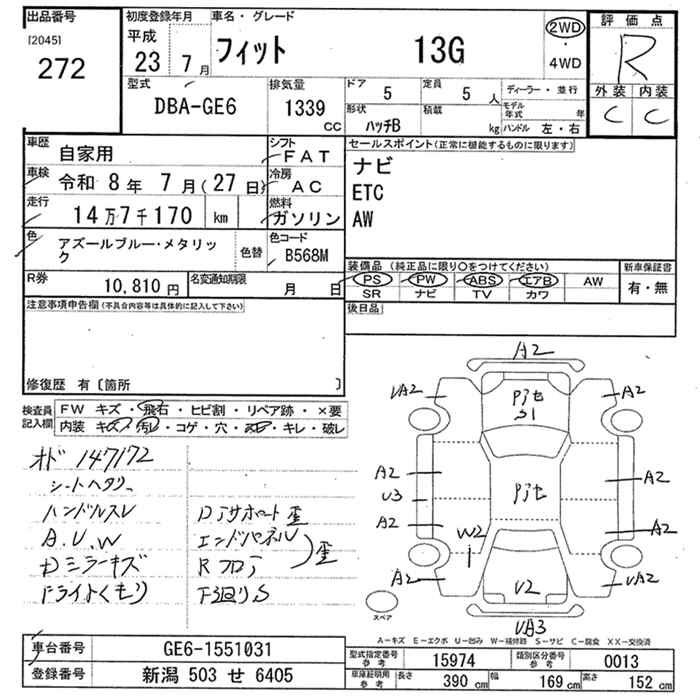 出品番号
[2045]
272
初度登録年月
平成
23 年 7 月
車名・グレード
フィット 13G
2WD
・
4WD
評価点
R
外装 内装
C C
型式
DBA-GE6
排気量
1339
CC
ドア
5
定員
5 人
形状
ハッチB
積載
kg
ディーラー・並行
モデル
年式 年
ハンドル 左・右
車歴
自家用
シフト
FAT
車検 令和 8 年 7 月 (27 日)
冷房
AC
走行
14万7千170 km
燃料
ガソリン
色
アズールブルー・メタリッ
ク
色替
色コード
B568M
R券
10,810 円
名変通知期限
月 日
セールスポイント(正常に機能するものに限ります)
ナビ
ETC
AW
装備品 (純正品に限り〇をつけてください)
PS PW ABS エアB AW
SR ナビ TV カワ
新車保証書
有・無
後日品
注意事項申告欄(不具合内容等は具体的に記入して下さい)
修復歴 有〔箇所 〕
検査員
記入欄
FW キズ・飛石・ヒビ割・リペア跡・×要
内装 キズ・汚レ・コゲ・穴・スレ・キレ・破レ
オド 147172
シートヘタリ
ハンドルスレ
A.U.W
Dミラーキズ
Fライトくもり
Dアサポート歪
エンドパネル
Rフロア
歪
下廻りS
A2
UA2
Pit
S1
A2
A2
U3
A2
Pit
A2
A2
W2
A2
U2
UA2
UA3
スペア
A-キズ E-エクボ U-凹み W-補修跡 S-サビ C-腐食 XX-交換済
車台番号 GE6-1551031
登録番号 新潟 503 せ 6405
型式指定番号
参考
15974
類別区分番号
参考
0013
車庫証明用
参考
長さ 390 cm 幅 169 cm 高さ 152 cm